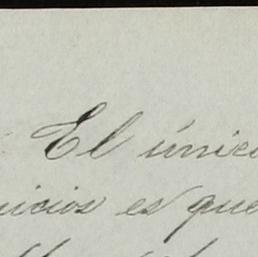 El únic
nicios es que